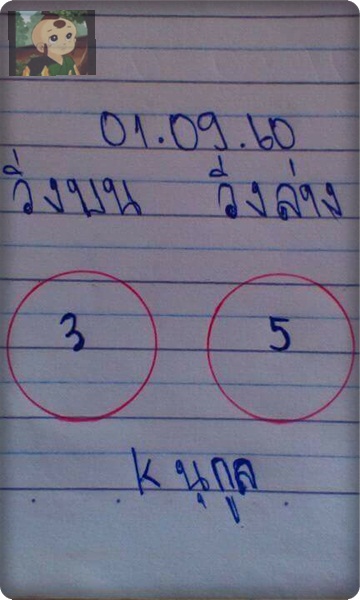 01.09.60
วิ่งบน วิ่งล่าง
3 5
K นุกูล